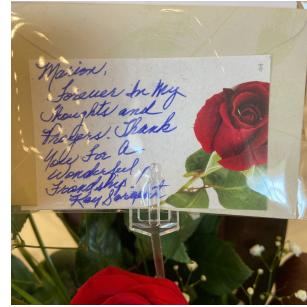 Marion,
Forever In My
Thoughts and
Prayers. Thank
You For A
Wonderful
Friendship
Kay